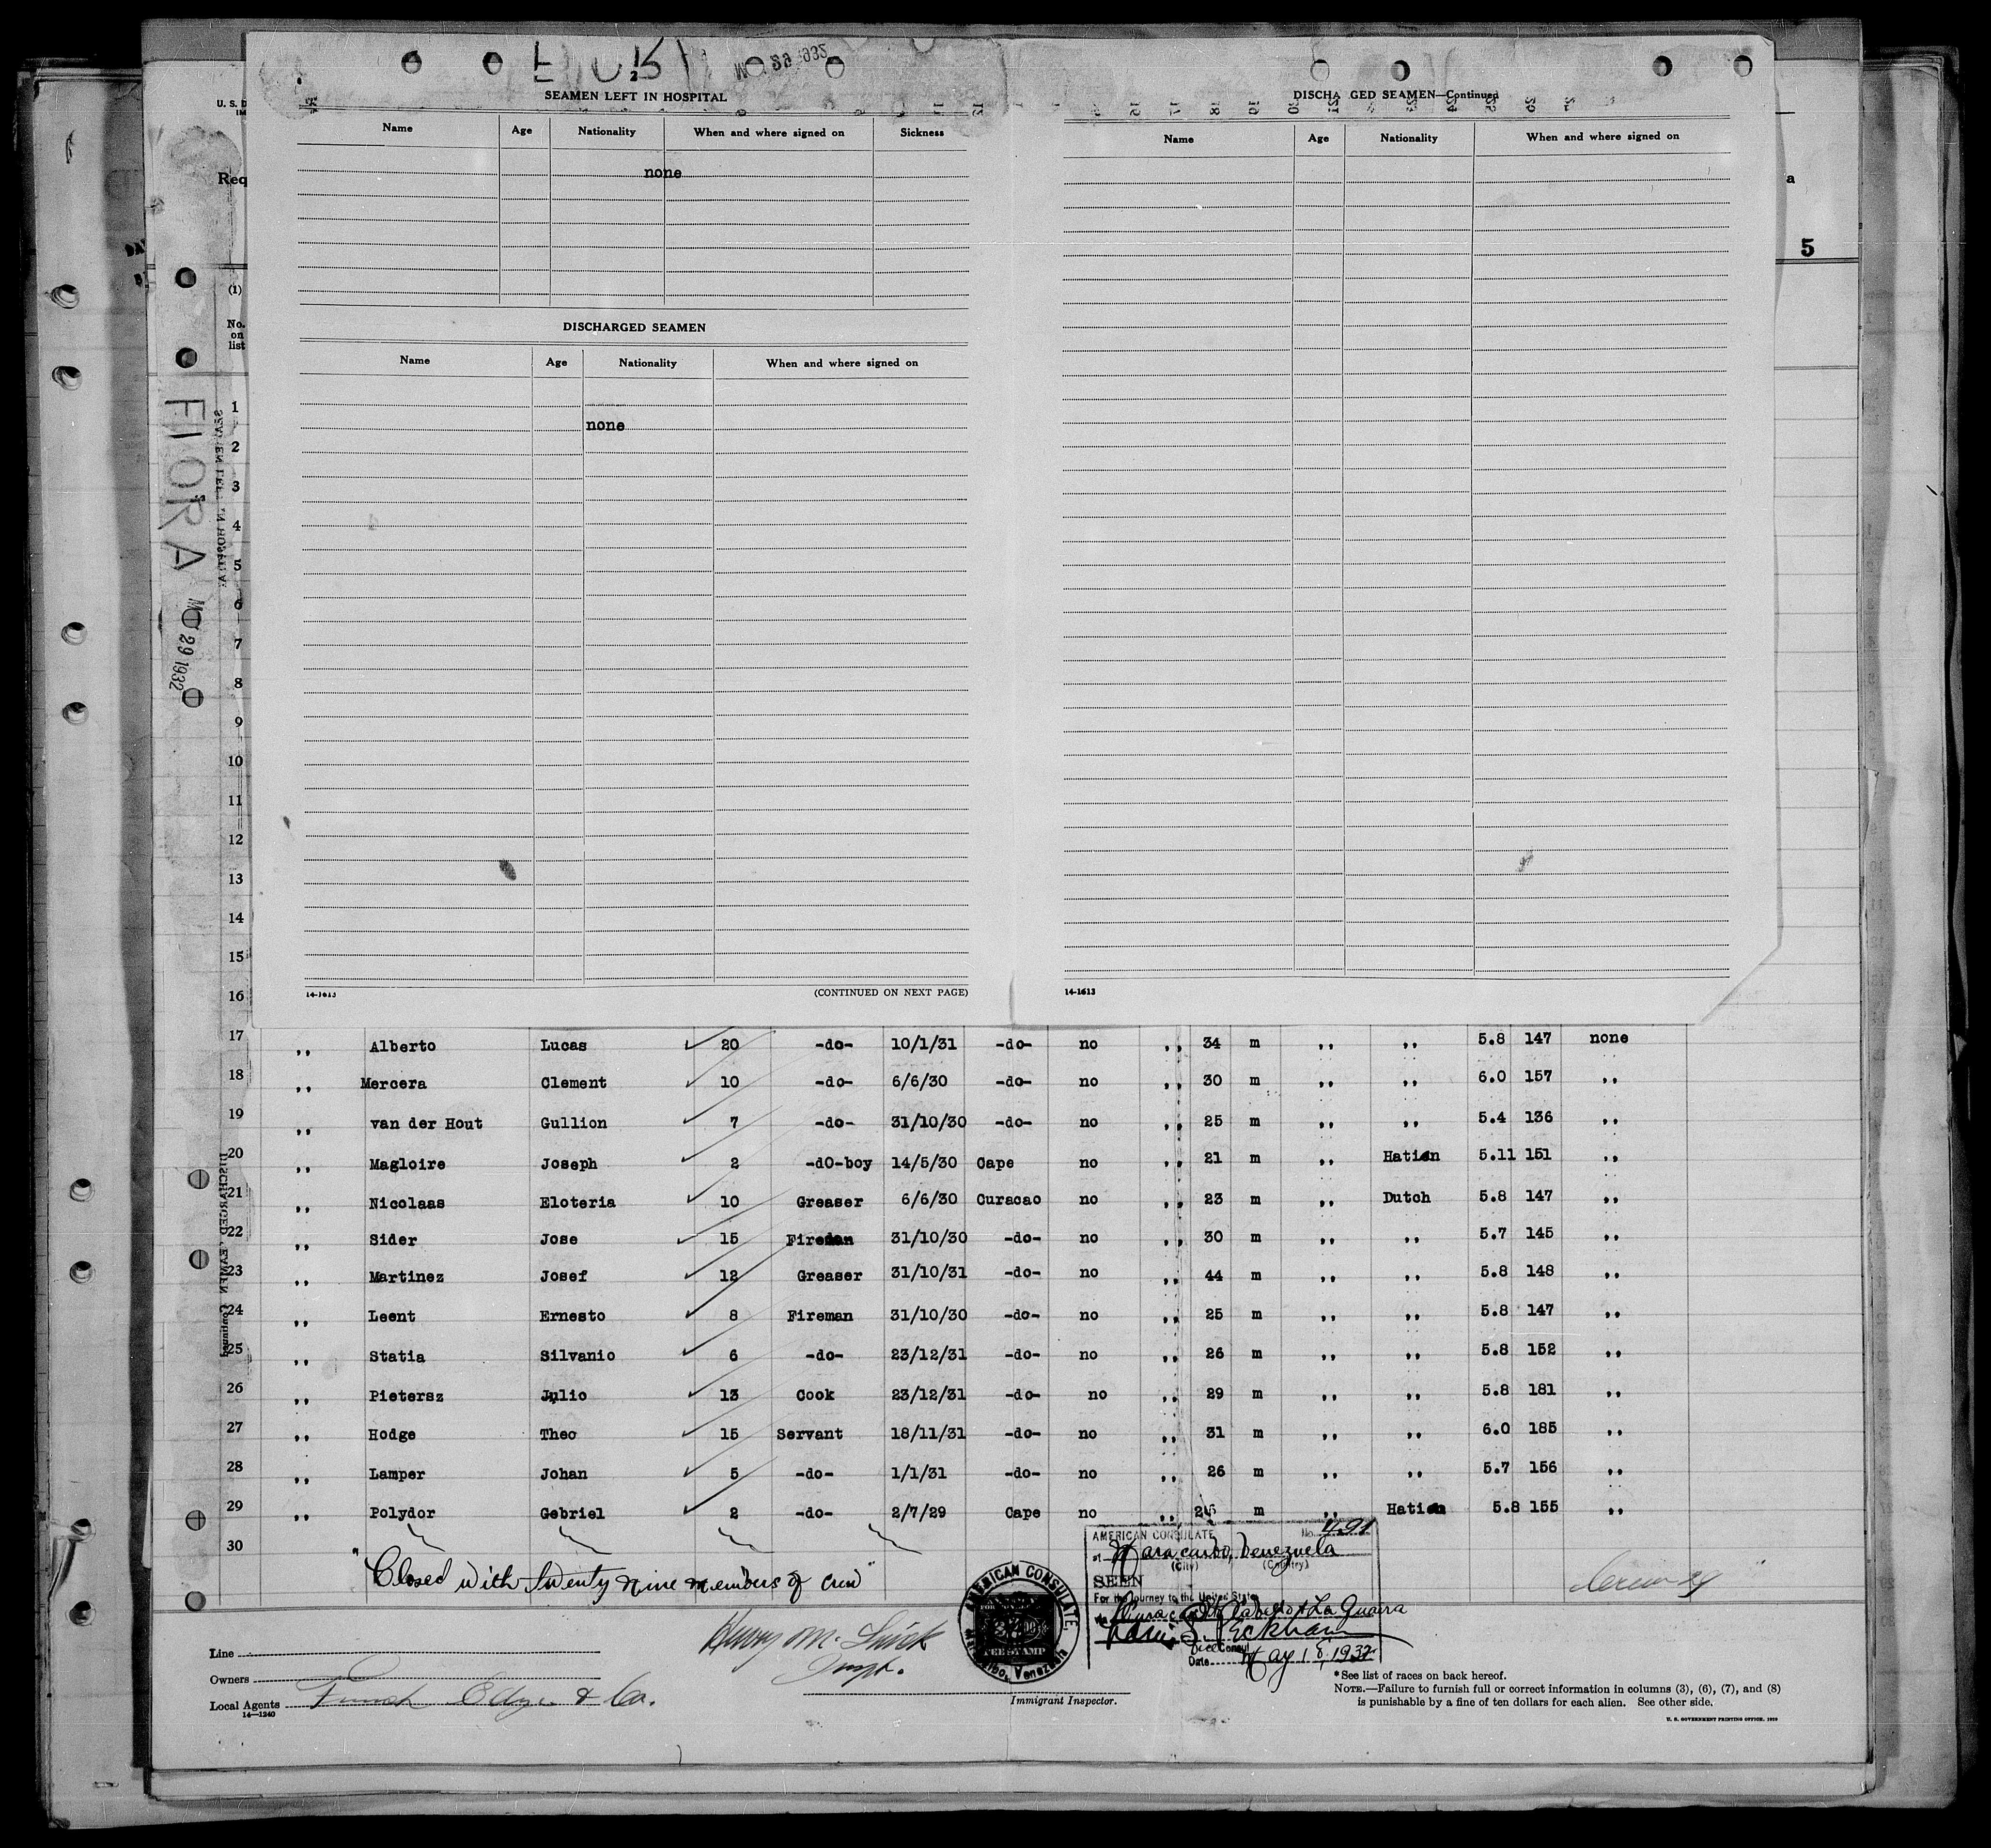 MAY 29 1932
2
SEAMEN LEFT IN HOSPITAL
Name Age Nationality When and where signed on Sickness
none
DISCHARGED SEAMEN
Name Age Nationality When and where signed on
none
14-1613 (CONTINUED ON NEXT PAGE)
DISCHA GED SEAMEN—Continued
Name Age Nationality When and where signed on
14-1613
U. S. D
IM
Req
a
5
(1)
No.
on
list
FLORA
SEAMEN LEFT IN HOSPITAL
29 1932
DISCHARGED SEAMEN Continued
1
2
3
4
5
6
7
8
9
10
11
12
13
14
15
16
17 ,, Alberto Lucas 20 -do- 10/1/31 -do- no ,, 34 m ,, ,, 5.8 147 none
18 ,, Mercera Clement 10 -do- 6/6/30 -do- no ,, 30 m ,, ,, 6.0 157 ,,
19 ,, van der Hout Gullion 7 -do- 31/10/30 -do- no ,, 25 m ,, ,, 5.4 136 ,,
20 ,, Magloire Joseph 2 -dO-boy 14/5/30 Cape no ,, 21 m ,, Hatien 5.11 151 ,,
21 ,, Nicolaas Eloteria 10 Greaser 6/6/30 Curacao no ,, 23 m ,, Dutch 5.8 147 ,,
22 ,, Sider Jose 15 Fireman 31/10/30 -do- no ,, 30 m ,, ,, 5.7 145 ,,
23 ,, Martinez Josef 12 Greaser 31/10/31 -do- no ,, 44 m ,, ,, 5.8 148 ,,
24 ,, Leent Ernesto 8 Fireman 31/10/30 -do- no ,, 25 m ,, ,, 5.8 147 ,,
25 ,, Statia Silvanio 6 -do- 23/12/31 -do- no ,, 26 m ,, ,, 5.8 152 ,,
26 ,, Pietersz Julio 13 Cook 23/12/31 -do- no ,, 29 m ,, ,, 5.8 181 ,,
27 ,, Hodge Theo 15 Servant 18/11/31 -do- no ,, 31 m ,, ,, 6.0 185 ,,
28 ,, Lamper Johan 5 -do- 1/1/31 -do- no ,, 26 m ,, ,, 5.7 156 ,,
29 ,, Polydor Gebriel 2 -do- 2/7/29 Cape no ,, 26 m ,, Hatien 5.8 155 ,,
30
"Closed with twenty nine members of crew"
AMERICAN CONSULATE No. 491
at Maracaibo, Venezuela
(City) (Country)
SEEN
For the journey to the United States
via Curacao, Pto Cabello & La Guaira
S. Eckham
Vice Consul
Date May 18, 1932
AMERICAN CONSULATE
Maracaibo, Venezuela
Line
Owners
Local Agents Funch Edye & Co.
14—1240
Henry M.
Insp.
Immigrant Inspector.
*See list of races on back hereof.
NOTE.—Failure to furnish full or correct information in columns (3), (6), (7), and (8)
is punishable by a fine of ten dollars for each alien. See other side.
U. S. GOVERNMENT PRINTING OFFICE, 1929